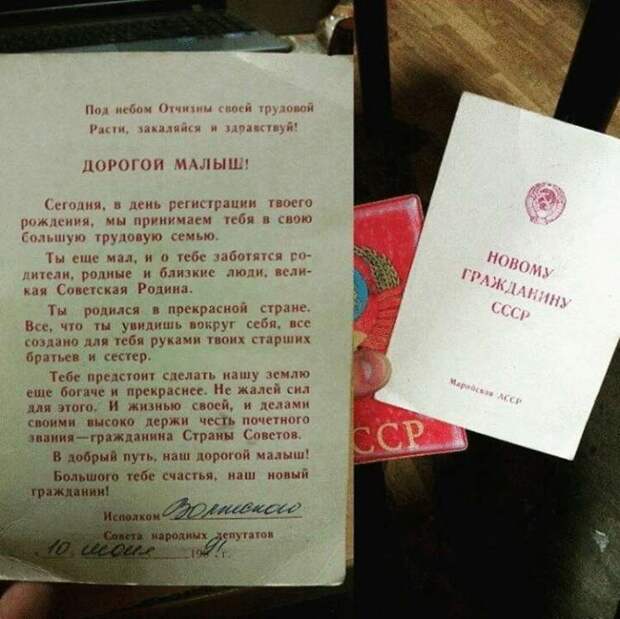 Под небом Отчизны своей трудовой
Расти, закаляйся и здравствуй!
ДОРОГОЙ МАЛЫШ!
Сегодня, в день регистрации твоего
рождения, мы принимаем тебя в свою
большую трудовую семью.
Ты еще мал, и о тебе заботятся ро-
дители, родные и близкие люди, вели-
кая Советская Родина.
Ты родился в прекрасной стране.
Все, что ты увидишь вокруг себя, все
создано для тебя руками твоих старших
братьев и сестер.
Тебе предстоит сделать нашу землю
еще богаче и прекраснее. Не жалей сил
для этого. И жизнью своей, и делами
своими высоко держи честь почетного
звания—гражданина Страны Советов.
В добрый путь, наш дорогой малыш!
Большого тебе счастья, наш новый
гражданин!
Исполком Волжского
Совета народных депутатов
10 1991 г.
ССР
НОВОМУ
ГРАЖДАНИНУ
СССР
Марийская АССР